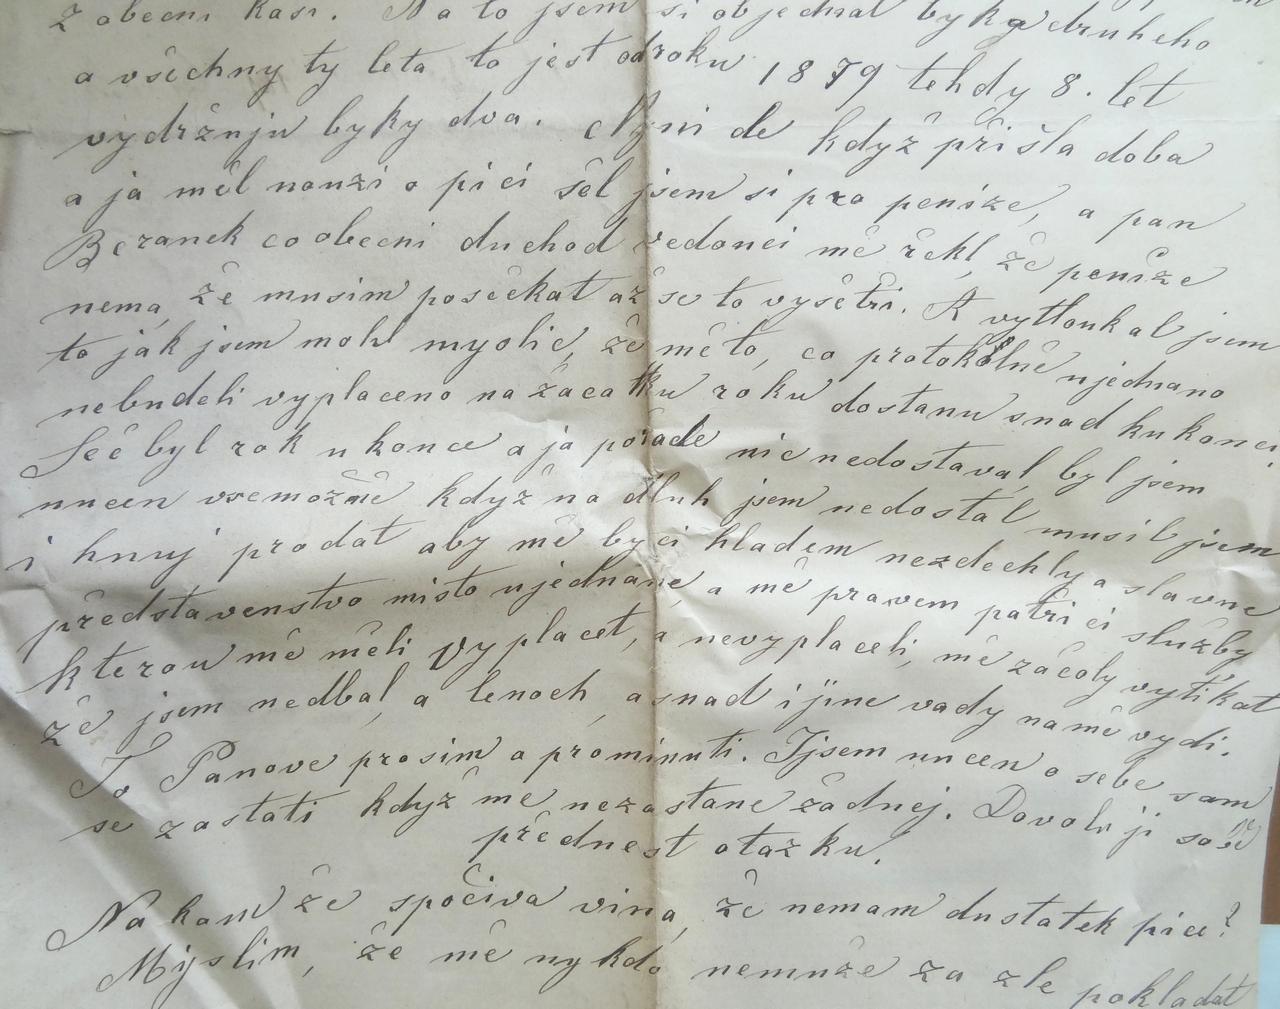 z obecni kasi. Na to jsem si objednal byka druheho
a všechny ty leta to jest od roku 1879 tehdy 8. let
vydržuju byky dva. Nyni de když přišla doba
a ja měl nouzi o pici šel jsem si pro penize, a pan
Beranek co obecni duchod vedouci mě řekl, že peniže
nema, že musim posečkat až se to vyšetři. A vytloukal jsem
to jak jsem mohl myslic, že mě to, co protokolně ujednano
nebudeli vyplaceno na začatku roku dostanu snad ku konci.
Leč byl rok u konce a ja pořade nic nedostaval, byl jsem
nucen vsemožně když na dluh jsem nedostal musil jsem
i hnuj prodat aby mě byci hladem nezdechly a slavne
představenstvo misto ujednane, a mě pravem patřici služby
kterou mě měli vyplacet, a nevyplaceli, mě začoly vytikat
že jsem nedbal, a lenoch, a snad i jine vady na mě vydi.
To Panove prosim o prominuti. Ijsem nucen o sebe sam
se zastati když me nezastane žadnej. Dovolu ji
přednest otazku.
Na kom že spočiva vina, že nemam dustatek pice?
Myslim, že mě nykdo nemuže za zle pokladat